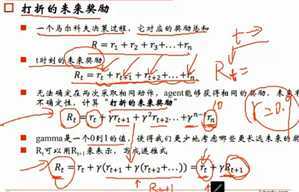 打折的未来奖励
一个马尔科夫决策过程，它对应的奖励总和
R = r₁ + r₂ + r₃ + ... + rₙ
t时刻的未来奖励
Rₜ = rₜ + rₜ₊₁ + rₜ₊₂ + ... + rₙ
t→
Rₜ=
无法确定在两次采取相同动作，agent能够获得相同的奖励，未来有
不确定性，计算“打折的未来奖励”
r=0.9
Rₜ = rₜ + γrₜ₊₁ + γ²rₜ₊₂ + ... + γⁿ⁻ᵗrₙ
gamma是一个0到1的值，使得我们更少地考虑哪些更长远未来的奖
Rₜ可以用Rₜ₊₁来表示，写成递推式
Rₜ = rₜ + γ(rₜ₊₁ + γ(rₜ₊₂ + ...)) = rₜ + γRₜ₊₁
Rₜ₊₁